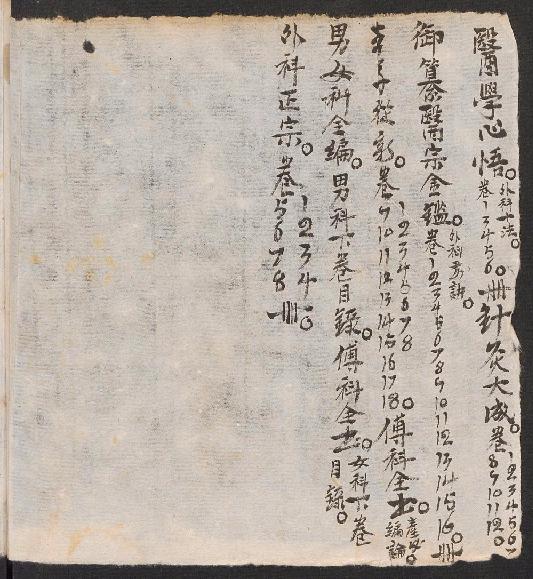 醫學心悟。外科十法。卷1 3 4 5 6。冊針灸大成。卷1 2 3 4 5 6 7 8 9 10 11 12。
御纂醫宗金鑑。外科要訣。卷1 2 3 4 5 6 7 8 9 10 11 12 13 14 15 16。冊
本草從新。卷1 2 3 4 5 6 7 8 9 10 11 12 13 14 15 16 17 18。傅科全士。產後。編論
男女科全編。男科下卷目錄。傅科全士。女科下卷目錄。
外科正宗。卷1 2 3 4 5 6 7 8。冊